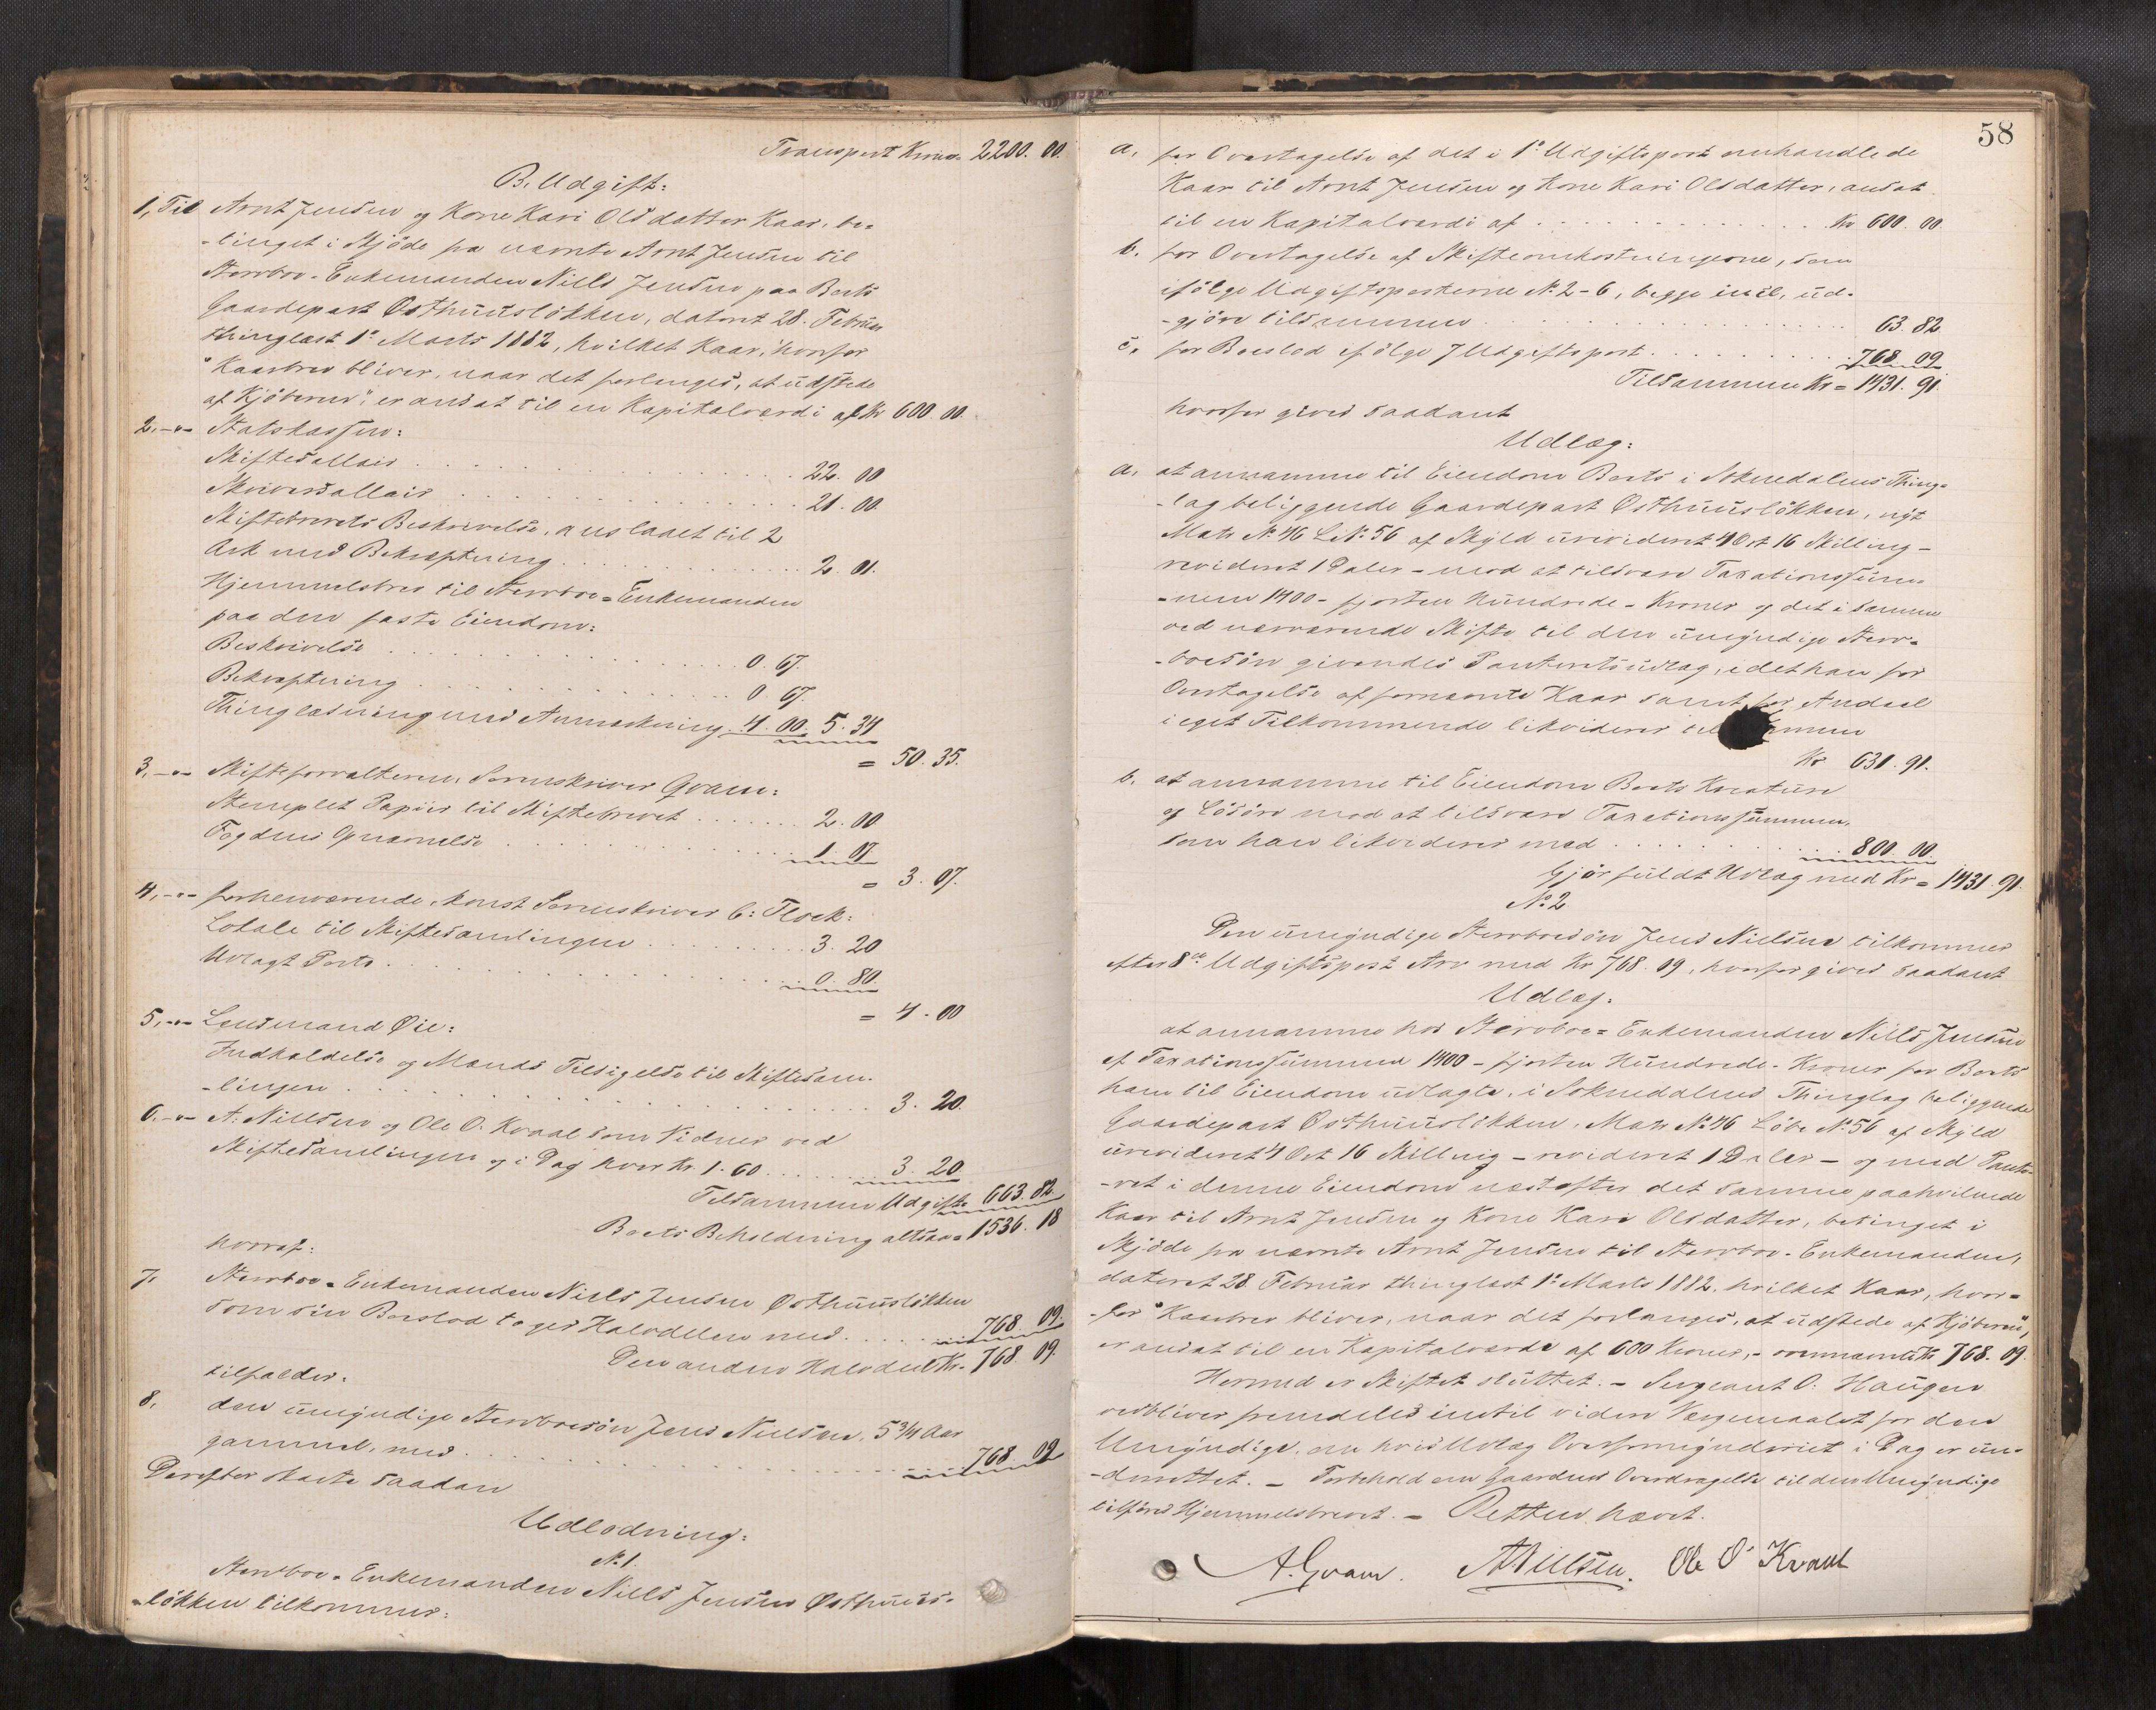 Transport Kroner 2200. 00.
B. Udgift:
1, Til Arnt Jensen og Kone Kari Olsdatter Kaar, be-
-tinget i Skjöde fra nævnte Arnt Jensen til
Stervboe-Enkemanden Niels Jensen paa Boets
Gaardepart Østhuuslökken, dateret 28. Februar
thinglæst 1ste Marts 1882, hvilket Kaar, hvorfor
"Kaarbrev bliver, naar det forlanges, at udstede
af Kjöberen", er ansat til en Kapitalværdi af Kr 600. 00.
2. -"- Statskassen:
Skiftesallair . . . 22. 00
Skriversallair . . . 21. 00.
Skiftebrevets Beskrivelse, anslaaet til 2
Ark med Bekræftning . . . 2. 01.
Hjemmelsbrev til Stervboe-Enkemanden
paa den faste Eiendom:
Beskrivelse . . . 0. 67.
Bekræftning . . . 0. 67.
Thinglæsning med Anmærkning 4. 00. 5. 34
= 50. 35.
3. -"- Skifteforvalteren, Sorenskriver Qvam:
Stemplet Papiir til Skiftebrevet . . . 2. 00
Fogdens Gjennemelse . . . 1. 07.
= 3. 07.
4. -"- forhenværende, konst Sorenskriver C: Floek:
Lokale til Skiftesamlingen . . . 3. 20
Udlagt Porto . . . 0. 80.
= 4. 00
5. -"- Lensmand Øie:
Indkaldelse og Mænds Tilsigelse til Skiftesam-
-lingen . . . 3. 20.
6. -"- A. Nielsen og Ole O. Kvaal som Vidner ved
Skiftesamlingen og i Dag hver Kr. 1. 60 . . . 3. 20
Tilsammen Udgifte 663. 82
Boets Beholdning altsaa = 1536. 18
hvoraf:
7. Stervboe-Enkemanden Niels Jensen Østhuuslökken
som sin Boeslod tager Halvdelen med . . . 768. 09.
Den anden Halvdeel Kr. 768. 09.
tilfalder:
8. den umyndige Stervboesön Jens Nielsen, 5 3/4 Aar
gammel, med . . . 768. 09
Derefter skeete saadan
Udlodning:
No. 1.
Stervboe-Enkemanden Niels Jensen Østhuus-
-lökken tilkommer:
58
a. for Overtagelse af det i 1ste Udgiftspost omhandlede
Kaar til Arnt Jensen og Kone Kari Olsdatter, ansat
til en Kapitalværdi af . . . Kr 600. 00
b. for Overtagelse af Skifteomkostningerne, som
ifölge Udgiftsposterne No. 2-6, begge incl, ud-
-gjöre tilsammen . . . 63. 82
c. for Boeslod ifölge 7 Udgiftspost . . . 768. 09
Tilsammen Kr = 1431. 91.
hvorfor gives saadant
Udlæg:
a. at annamme til Eiendom Boets i Soknedalens Thing-
-lag beliggende Gaardepart Østhuuslökken, nyt
Matr No. 46 L. No. 56 af Skyld urevideret 4 Ort 16 Skilling -
revideret 1 Daler - mod at tilsvare Taxationssum-
-men 1400 - fjorten Hundrede - Kroner og det i samme
ved nærværende Skifte til den umyndige Sterv-
-boesön givendes Panterets udlæg, idet han for
Overtagelse af fornævnte Kaar samt for Andeel
i eget Tilkommende likviderer til
Kr 631. 91.
b. at annamme til Eiendom Boets Kreature
og Lösöre mod at tilsvare Taxationssummen,
som han likviderer med . . . 800. 00.
Gjör fuldt Udlæg med Kr = 1431. 91.
No. 2
Den umyndige Stervboesön Jens Nielsen tilkommer
efter 8de Udgiftspost Arv med Kr 768. 09, hvorfor gives saadant
Udlæg:
at annamme hos Stervboe-Enkemanden Niels Jensen
af Taxationssummen 1400 - fjorten Hundrede - Kroner for Boets
ham til Eiendom udlagte, i Soknedalens Thinglag beliggende
Gaardepart Østhuuslökken, Matr No. 46 Löbe No. 56 af Skyld
urevideret 4 Ort 16 Skilling - revideret 1 Daler - og med Pante-
-ret i denne Eiendom næstefter det samme paahvilende
Kaar til Arnt Jensen og Kone Kari Olsdatter, betinget i
Skjöde fra nævnte Arnt Jensen til Stervboe-Enkemanden,
dateret 28 Februar thinglæst 1ste Marts 1882, hvilket Kaar, hvor-
-for "Kaarbrev bliver, naar det forlanges, at udstede af Kjöberen",
er ansat til en Kapitalværdi af 600 Kroner, - ovennævnte Kr 768. 09
Hermed er Skiftet sluttet. - Sergeant O: Haugen
vedbliver fremdeles indtil videre Værgemaalet for den
Umyndige, om hvis Udlæg Overformynderiet i Dag er un-
-derrettet. - Forbehold om Gaardens Overdragelse til den Umyndige
tilföres Hjemmelsbrevet. - Retten hævet.
A. Qvam. A Nielsen. Ole O Kvaal